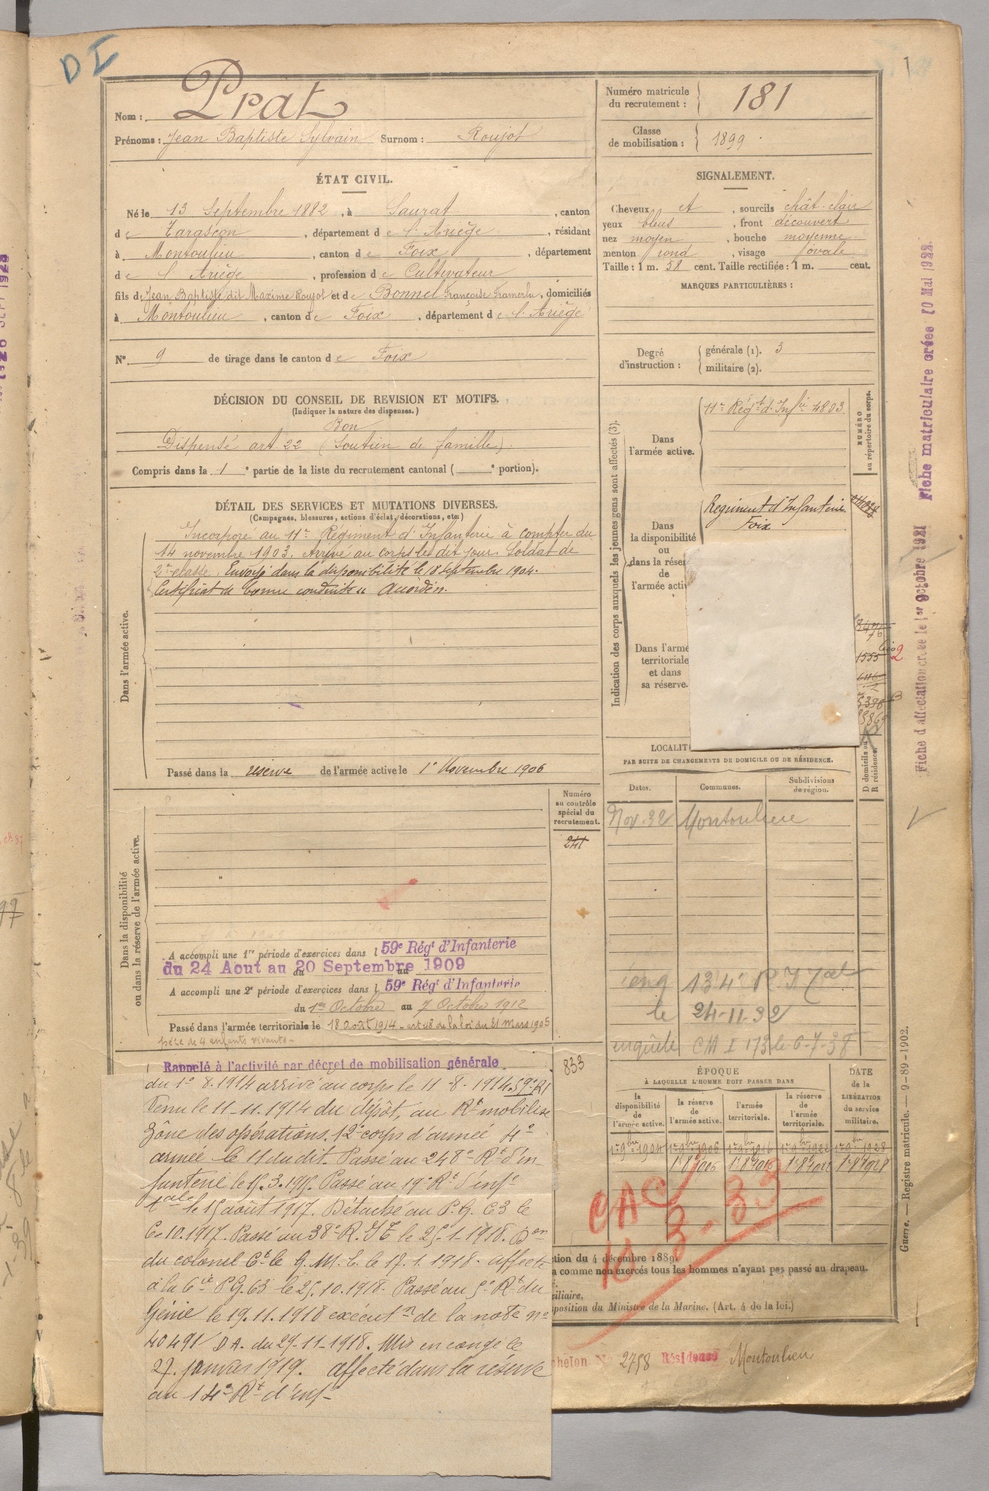 D I
Nom : Prat
Prénoms : Jean Baptiste Sylvain Surnom : Roujot
Numéro matricule du recrutement : 181
Classe de mobilisation : 1899
ÉTAT CIVIL.
Né le 13 Septembre 1882, à Saurat, canton
de Tarascon, département de l'Ariège, résidant
à Montoulieu, canton de Foix, département
de l'Ariège, profession de Cultivateur
fils de Jean Baptiste dit Maxime Roujot et de Bonnel Françoise, domiciliés
à Montoulieu, canton de Foix, département de l'Ariège
N° 9 de tirage dans le canton de Foix
SIGNALEMENT.
Cheveux et, sourcils chât. clair
yeux bleus, front découvert
nez moyen, bouche moyenne
menton rond, visage ovale
Taille : 1 m. 58 cent. Taille rectifiée : 1 m. cent.
MARQUES PARTICULIÈRES :
Degré d'instruction : générale (1). 3
militaire (2).
DÉCISION DU CONSEIL DE REVISION ET MOTIFS.
(Indiquer la nature des dispenses.)
Bon
Dispensé art. 22 (Soutien de famille).
Compris dans la 1e partie de la liste du recrutement cantonal ( e portion).
DÉTAIL DES SERVICES ET MUTATIONS DIVERSES.
(Campagnes, blessures, actions d'éclat, décorations, etc.)
Dans l'armée active.
Incorporé au 11e Régiment d'Infanterie à compter du
14 novembre 1903. Arrivé au corps le dit jour. Soldat de
2me classe. Envoyé dans la disponibilité le 18 septembre 1904.
Certificat de bonne conduite "Accordé".
Passé dans la réserve de l'armée active le 1er Novembre 1906
Indication des corps auxquels les jeunes gens sont affectés (3).
Dans l'armée active.
11e Régt d'Infie 4803
NUMÉRO au répertoire du corps.
Dans la disponibilité ou dans la réserve de l'armée acti
Régiment d'Infanterie
Foix
Dans l'armé territoriale et dans sa réserve.
1555
2
LOCALIT
PAR SUITE DE CHANGEMENTS DE DOMICILE OU DE RÉSIDENCE.
Dates. Communes. Subdivisions de région.
D domicile ou R résidence.
Nov. 32 Montoulieu
134e R I
le 24-11-32
enquête CM I 173 le 6-7-38
Numéro au contrôle spécial du recrutement.
241
Dans la disponibilité ou dans la réserve de l'armée active.
A accompli une 1re période d'exercices dans l 59e Régt d'Infanterie
du 24 Aout au 20 Septembre 1909
A accompli une 2e période d'exercices dans l 59e Régt d'Infanterie
du 1er Octobre au 7 Octobre 1912
Passé dans l'armée territoriale le 18 août 1914 - art de la loi du 21 mars 1905
père de 4 enfants vivants -
833
Rappelé à l'activité par décret de mobilisation générale
du 1er 8.1914 arrivé au corps le 11-8-1914. 59e RI
Venu le 11-11.1914 du dépôt, au Rt mobilisé
Zône des opérations. 12e corps d'armée 4e
armée le 11 du dit. Passé au 248e Rt d'in
fanterie le 15.3.1915. Passé au 19e Rt d'infie
tale le 15 août 1917. Détaché au P.G. 63 le
6-10.1917. Passé au 38e R.I.T. le 25.1.1918.
du colonel Ct le 9. M. E. le 17.1.1918. affecté
à la 6ie P.G. 63 le 25.10.1918. Passé au 5e Rt du
Génie le 19.11.1918 exécutn de la note no
40491 D A. du 27.11.1918. Mis en congé le
27. janvier 1919. affecté dans la réserve
au 14e Rt d'infie
ÉPOQUE
À LAQUELLE L'HOMME DOIT PASSER DANS
la disponibilité de l'armée active. la réserve de l'armée active. l'armée territoriale. la réserve de l'armée territoriale.
DATE de la LIBÉRATION du service militaire.
CAC
10 3-33
tion du 4 décembre 1889.
a comme non exercés tous les hommes n'ayant pas passé au drapeau.
xiliaire.
position du Ministre de la Marine. (Art. 4 de la loi.)
helon N° 2758 Résidence Montoulieu
Fiche matriculaire créée 10 Mai 1928.
Fiche d'affectation créée le 1er octobre 1931
Guerre. — Registre matricule. — 9-89-1902.